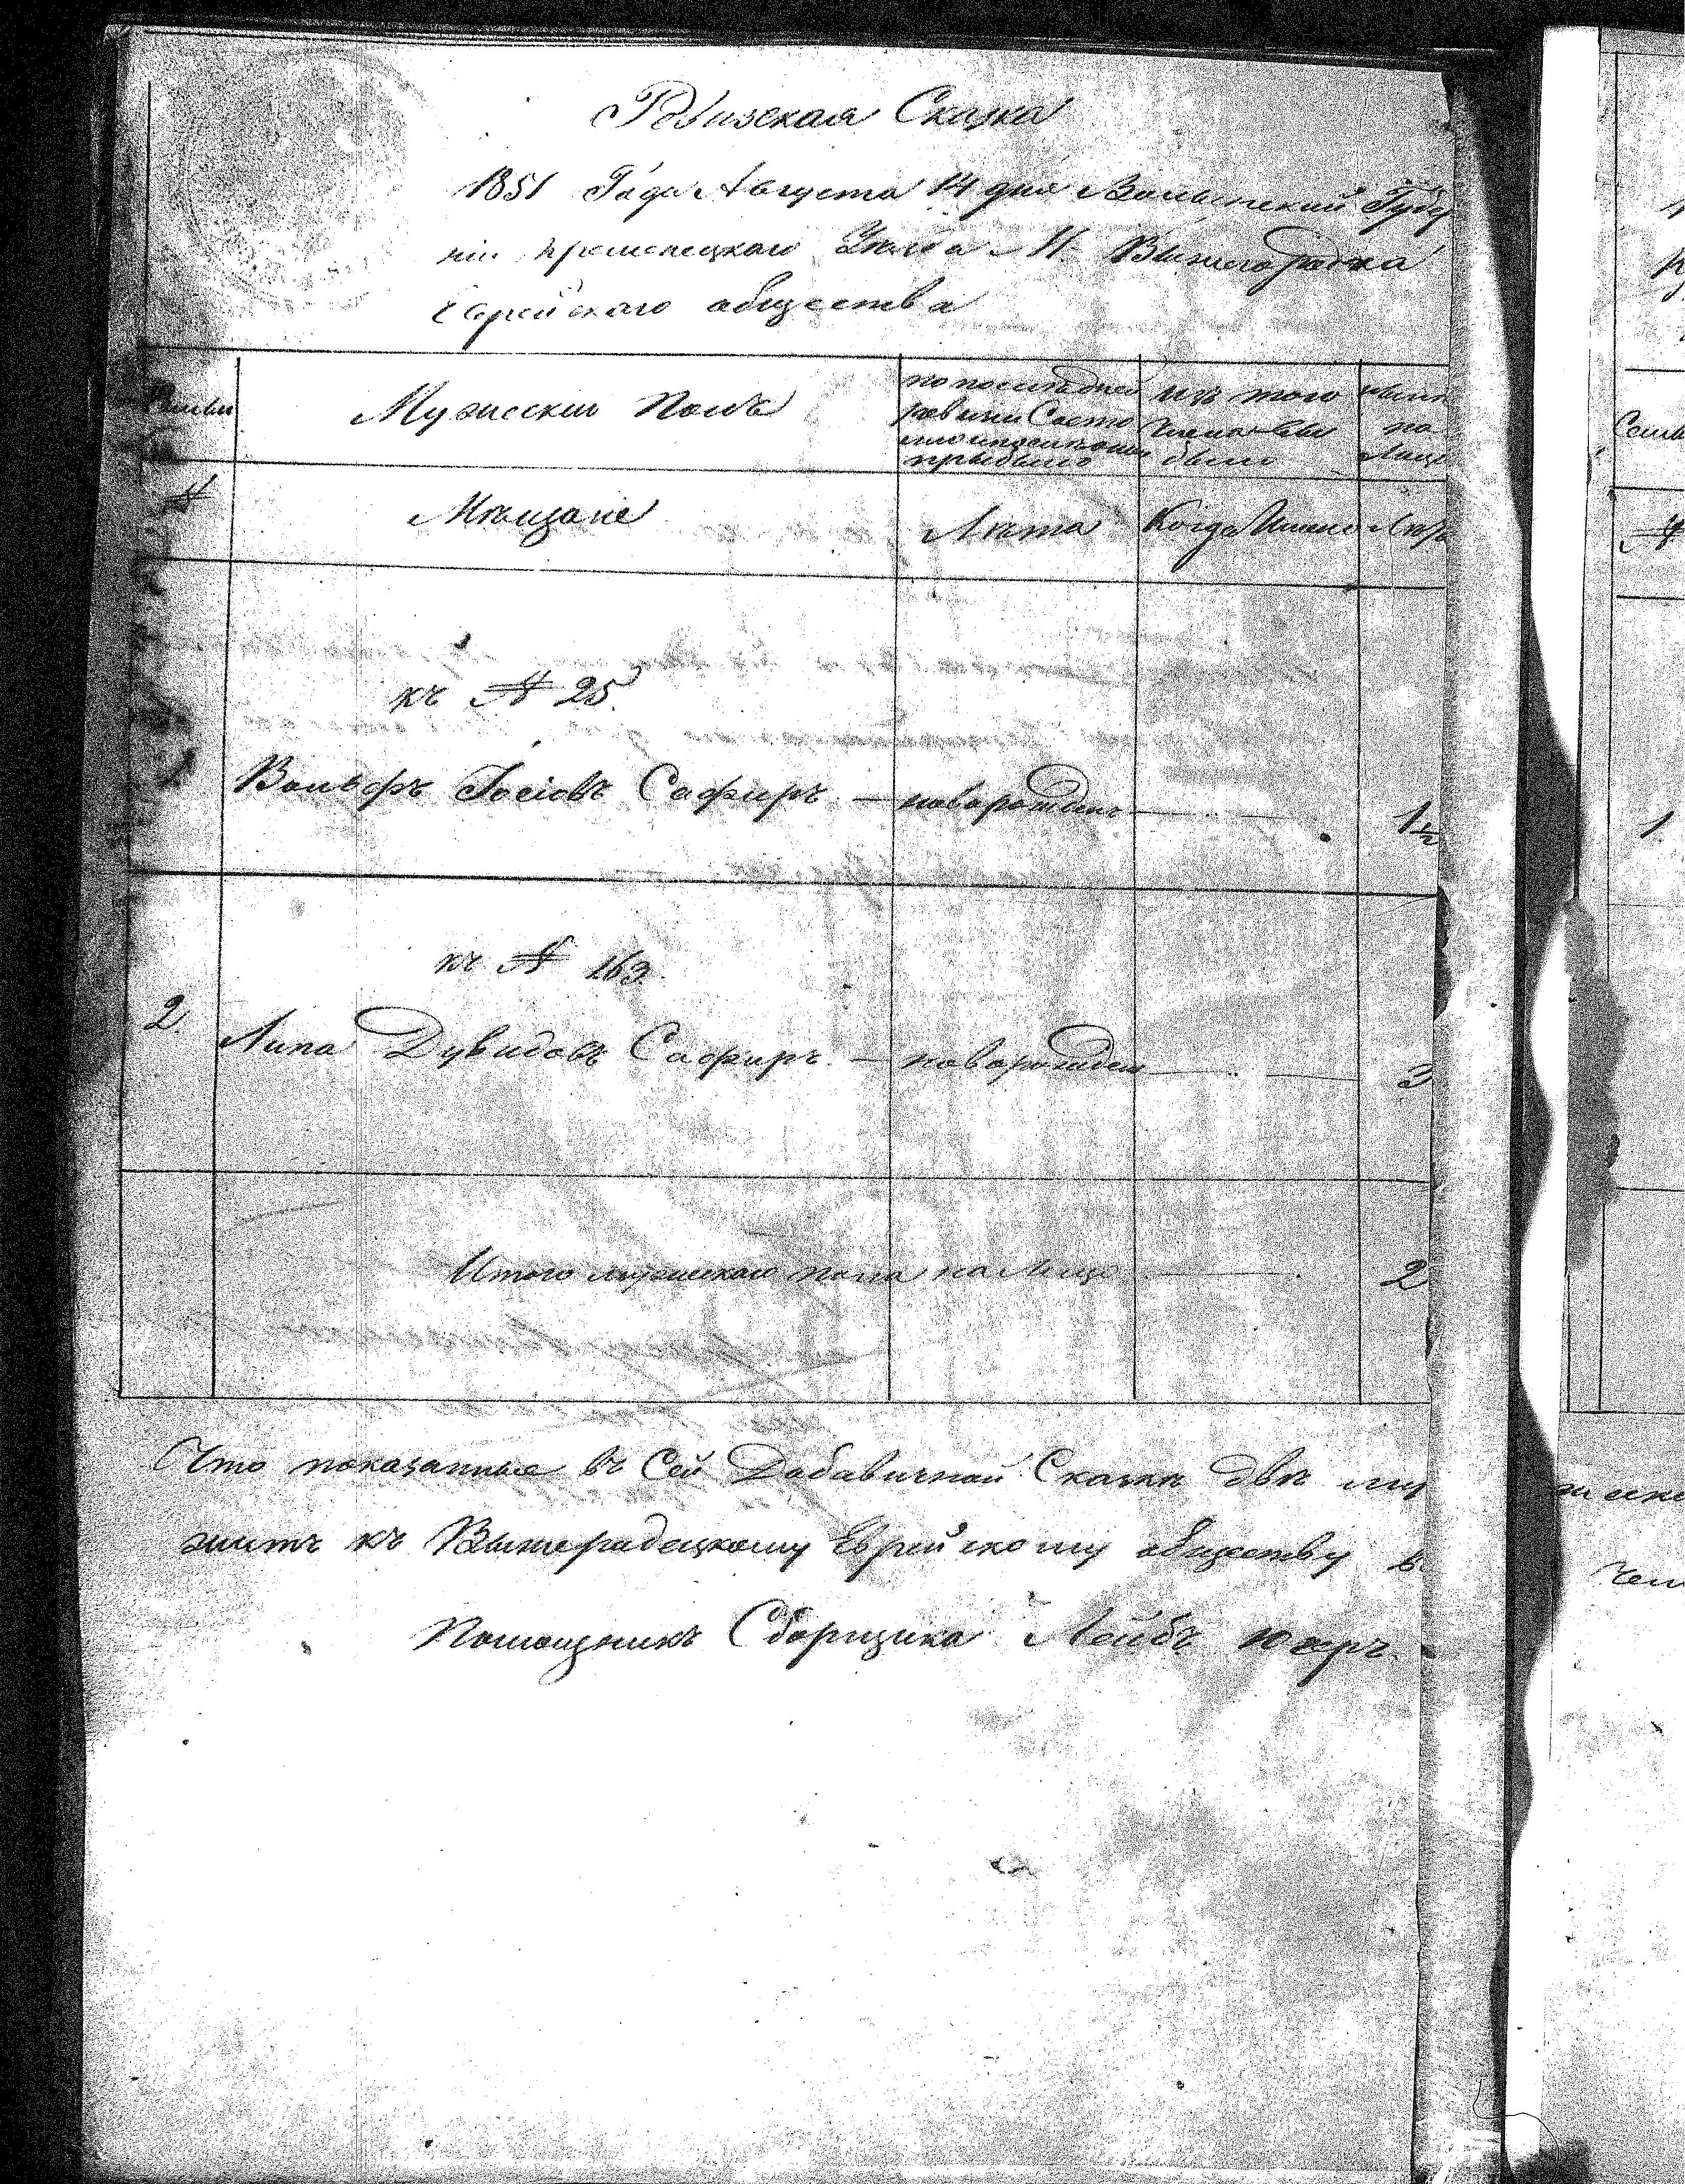 Ревизская Сказка
1851 Года Августа 14 дня Волынской Губер
ніи Кременецкаго Уезда М. Вышегородка
Еврейскаго общества
Семьи
Мужескій Полъ
по последней
ревизіи Состо
яло и после оной
прыбыло
изъ того
числа выбыло
ныне
на
Лицо
№
Мещане
Лета
Когда Имено
Лета
къ № 25.
1
Вольфъ Іосіовъ Сафиръ — новорожденъ 1½
къ № 163
2. Липа Дувидовъ Сафиръ — новорожден 3
Итого мужескаго пола на Лицо 2
Что показанные въ Сей Добавичной Сказке две му
житъ къ Вышеградецкому Еврейскому обществу в
Помощникъ Сборщика Лейбъ
Семьи
№
1